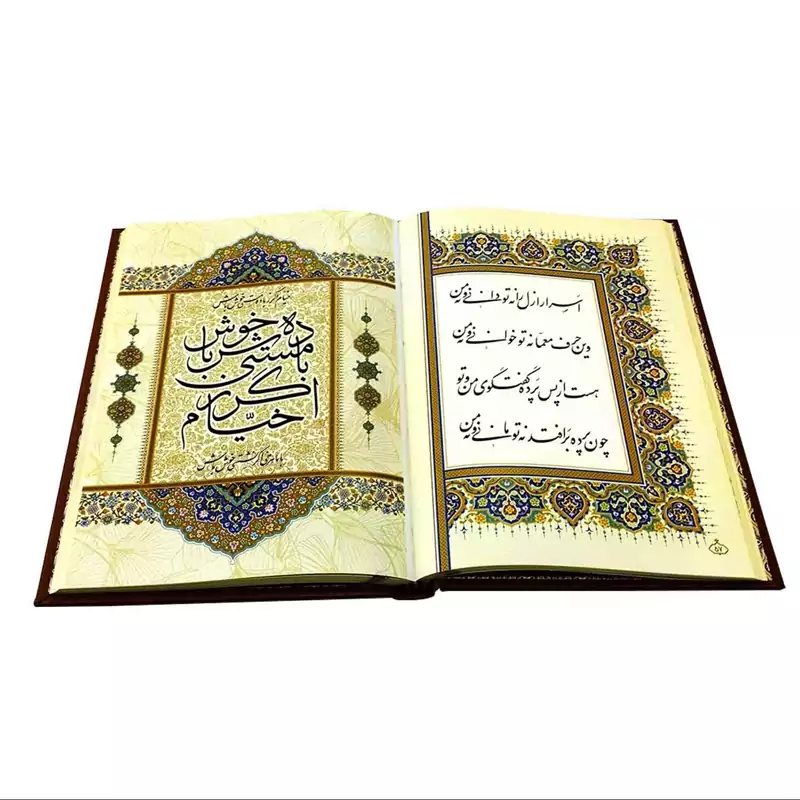 اسرار ازل را نه تو دانی و نه من
وین حرف معما نه تو خوانی و نه من
هست از پس پرده گفتگوی من و تو
چون پرده برافتد نه تو مانی و نه من
۵۷
خیام اگر ز باده مستی خوش باش
خیّام اگر ز باده مستی خوش باش
با ماهرخی اگر نشستی خوش باش